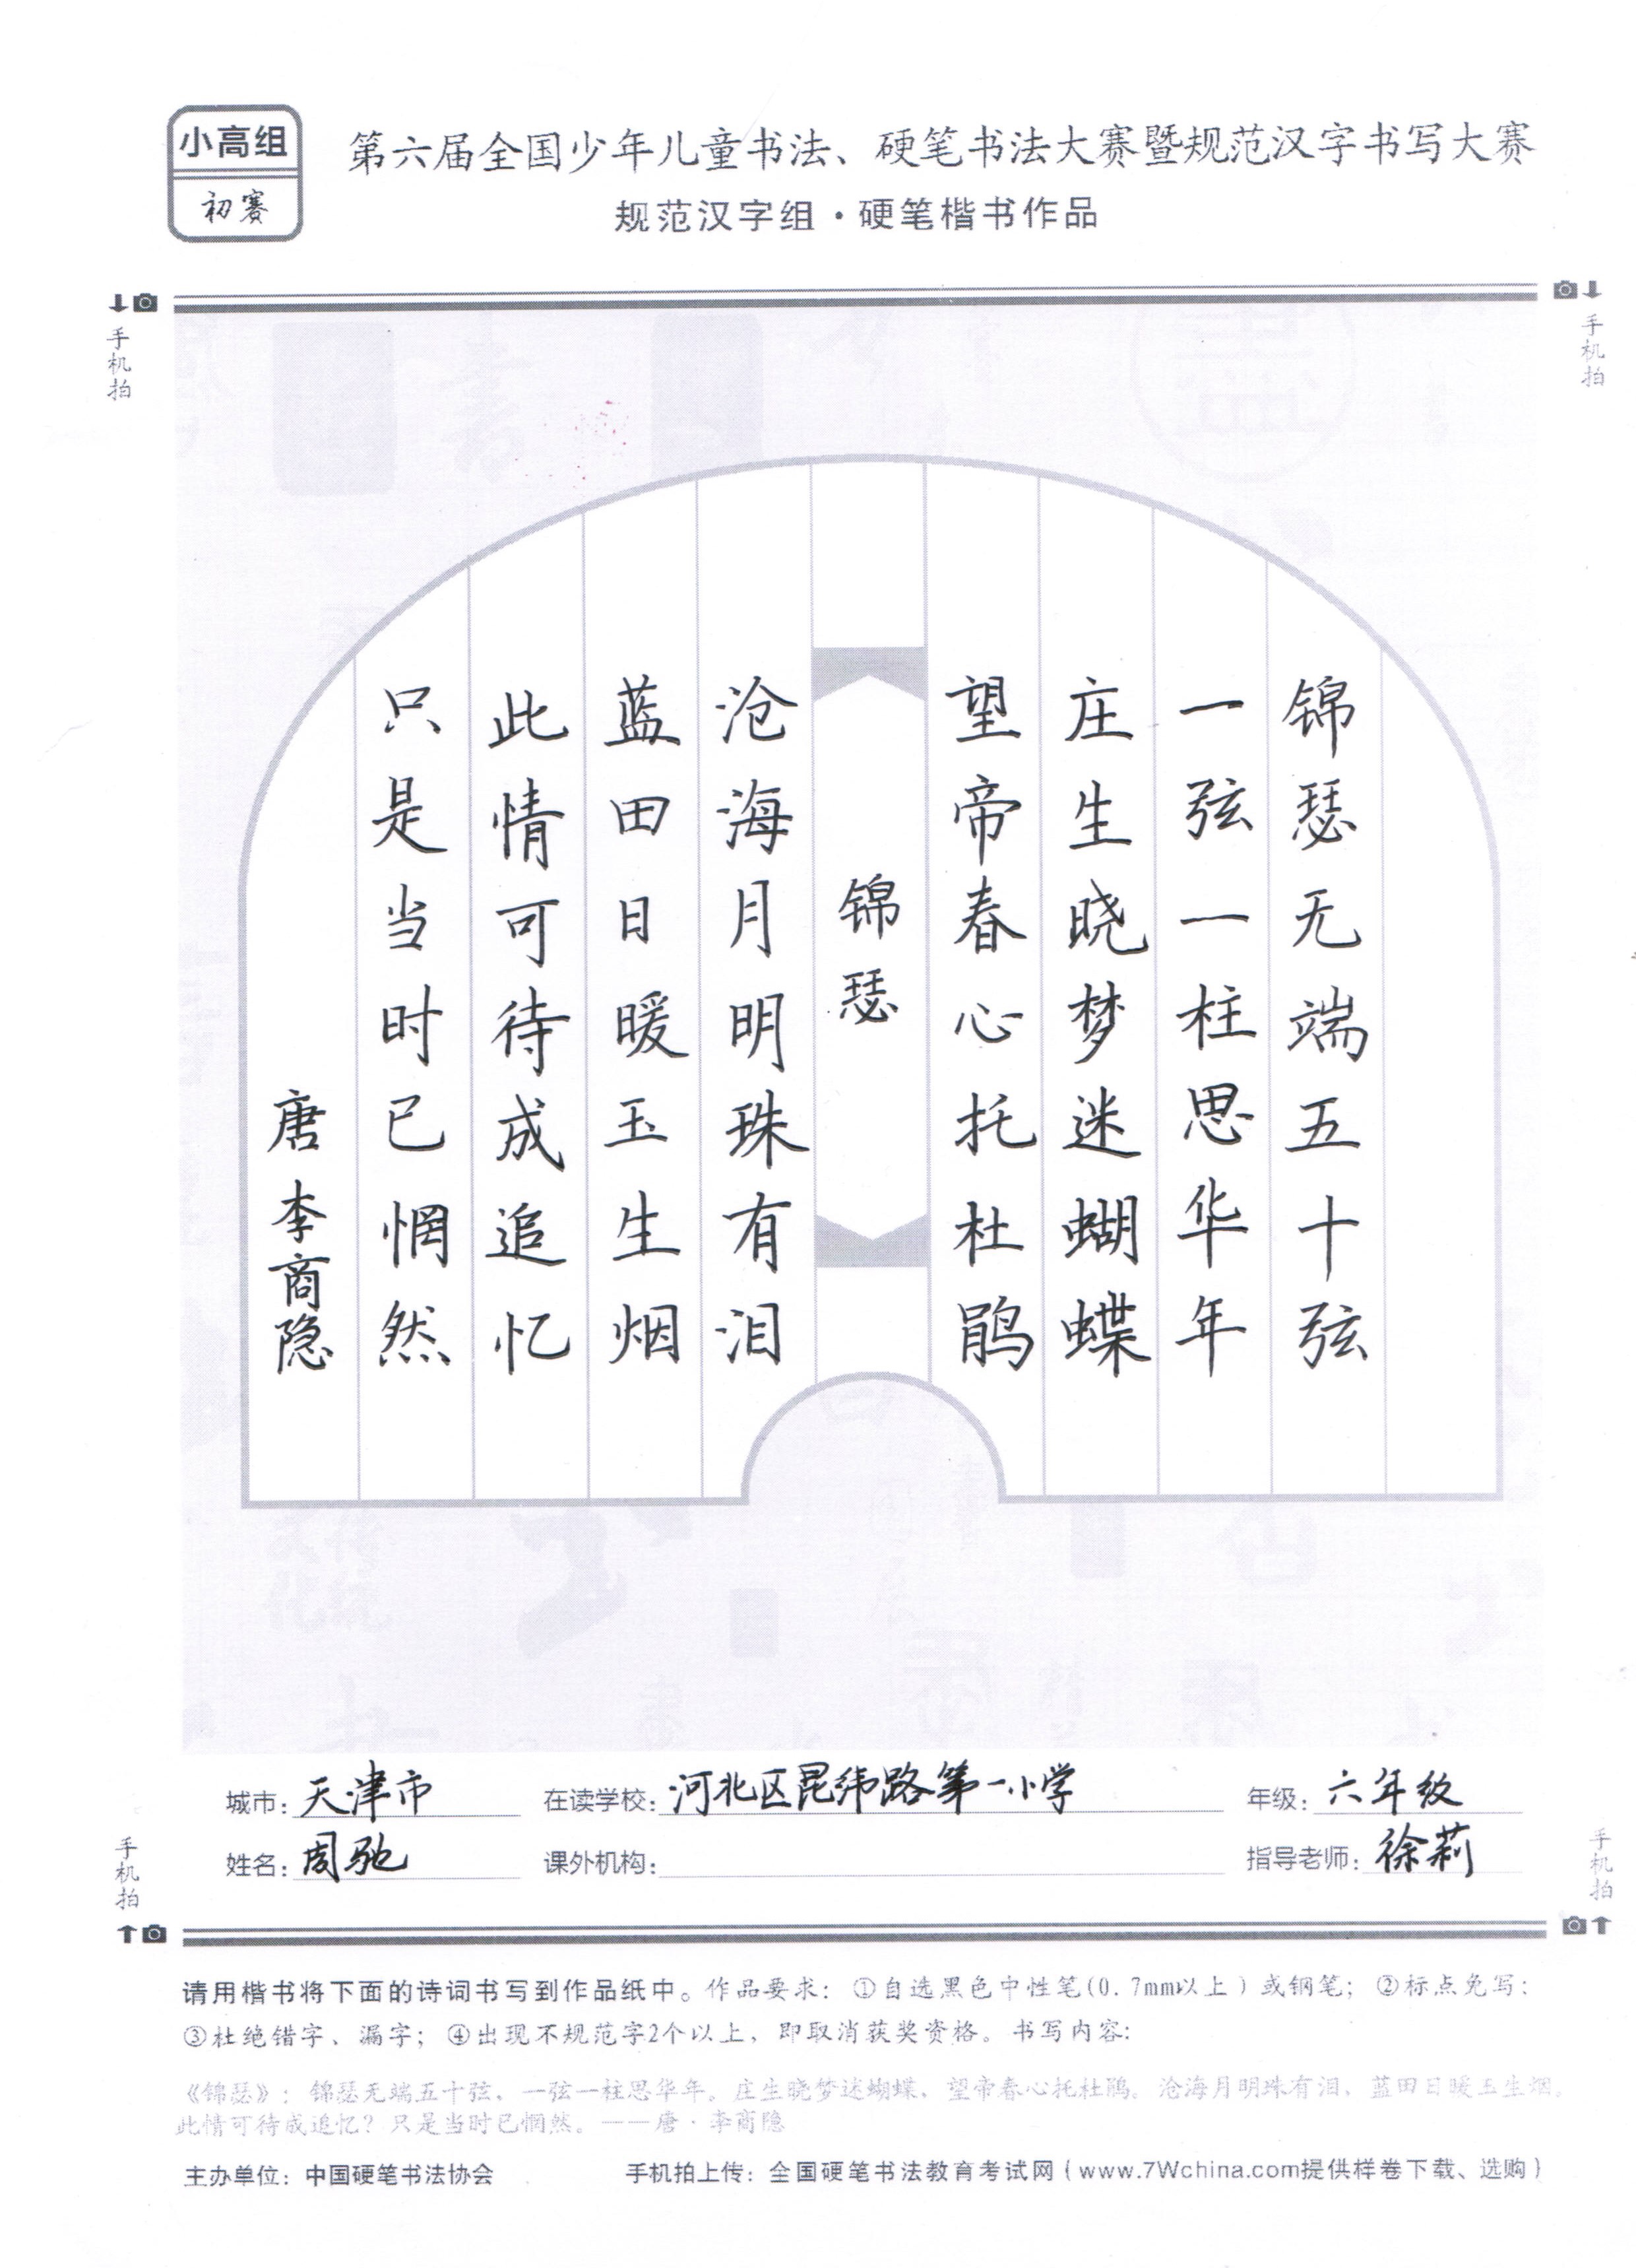 小高组
初赛
第六届全国少年儿童书法、硬笔书法大赛暨规范汉字书写大赛
规范汉字组·硬笔楷书作品
手机拍
手机拍
锦瑟无端五十弦
一弦一柱思华年
庄生晓梦迷蝴蝶
望帝春心托杜鹃
锦瑟
沧海月明珠有泪
蓝田日暖玉生烟
此情可待成追忆
只是当时已惘然
唐李商隐
城市：天津市 在读学校：河北区昆纬路第一小学 年级：六年级
姓名：周驰 课外机构： 指导老师：徐莉
手机拍
手机拍
请用楷书将下面的诗词书写到作品纸中。作品要求：①自选黑色中性笔(0.7mm以上）或钢笔；②标点免写；
③杜绝错字、漏字；④出现不规范字2个以上，即取消获奖资格。书写内容：
《锦瑟》：锦瑟无端五十弦，一弦一柱思华年。庄生晓梦迷蝴蝶，望帝春心托杜鹃。沧海月明珠有泪，蓝田日暖玉生烟。
此情可待成追忆？只是当时已惘然。——唐·李商隐
主办单位：中国硬笔书法协会 手机拍上传：全国硬笔书法教育考试网（www.7Wchina.com提供样卷下载、选购）